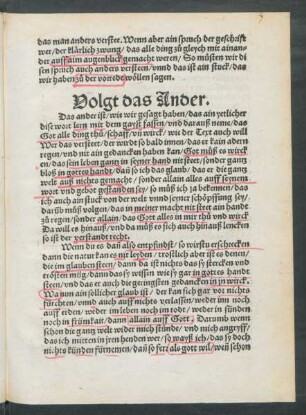 das man anders verstee. Wenn aber ain spruch der geschrifft
wer / der klärlich zwung / das alle ding zů gleych mit ainan-
der auff ain augenblick gemacht weren / So můsten wir di
sen spruch auch anders versteen / vnnd das ist ain stuck / das
wir haben zů der vorrede wöllen sagen.
Volgt das Ander.
Das ander ist / wie wir gesagt haben / das ain yetlicher
dise wort lern mit dem gayst fassen / vnd darauß neme / das
Got alle ding thů / schaff / vñ würck / wie der Text auch will
Wer das versteet / der wurdt so bald innen / das er kain
regen / vnd nit ain gedancken haben kan / Got můß es wircken
das sein leben gantz in seyner hand nit stee / sonder gantz
bloß in gottes handt / dañ so ich das glaub / das er die gantz
welt auß nichts gemacht / sonder allain alles auff seinem
wort vnd gebot gestanden sey / so můß ich ja bekennen / das
ich auch ain stuck bin der welt vnnd seyner schöpffung sey /
darůß můß volgen / das in meiner macht nit stee ain handt
zů regen / sonder allain / das Gott alles in mir thů vnd wirck
Da will es hinauß / vnd da můß es sich auch hinauß lencken
so ist der verstandt recht.
Wenn du es dañ also empfindst / so wirstu erschrecken
dann die natur kan es nit leyden / tröstlich aber ist es denen
die im glauben steen / dann da ist nichts das sy stercken vnd
trösten müg / dann das sy wissen wie sy gar in gottes handt
steen / vnd das er auch die geringsten gedancken in jn wirck.
Wa nun ain söllicher glaub ist / der kan sich gar vor nichts
fürchten / vnnd auch auff nichts verlassen / weder im noch
auff erden / weder im leben noch im todt / weder in sünden
noch in frümkait / dann allain auff Gott. Darumb wenn
schon die gantz welt wider mich stünde / vnd mich angryff /
das ich mitten in jren henden wer / so wayß ich / das sy doch
nichts künden fürnemen / dañ so fer als gott wil / weñ schon